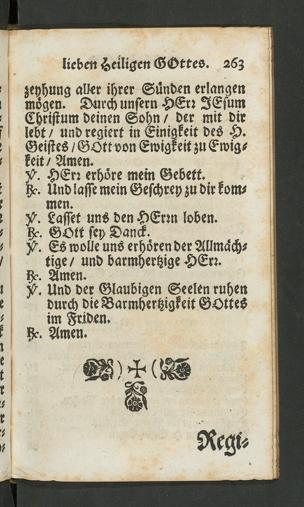 lieben Heiligen GOttes. 263
zeyhung aller ihrer Sünden erlangen
mögen. Durch unsern HErꝛ JEsum
Christum deinen Sohn / der mit dir
lebt / und regiert in Einigkeit des H.
Geistes / GOtt von Ewigkeit zu Ewig⸗
keit / Amen.
℣. HErꝛ erhöre mein Gebett.
℟. Und lasse mein Geschrey zu dir kom⸗
men.
℣. Lasset uns den HErꝛn loben.
℟. GOtt sey Danck.
℣. Es wolle uns erhören der Allmäch⸗
tige / und barmhertzige HErꝛ.
℟. Amen.
℣. Und der Glaubigen Seelen ruhen
durch die Barmhertzigkeit GOttes
im Friden.
℟. Amen.
Regi⸗